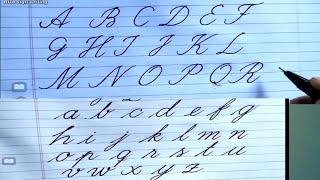 A B C D E F
G H I J K L
M N O P Q R
a b c d e f g
h i j k l m n
o p q r s t u
v w x y z